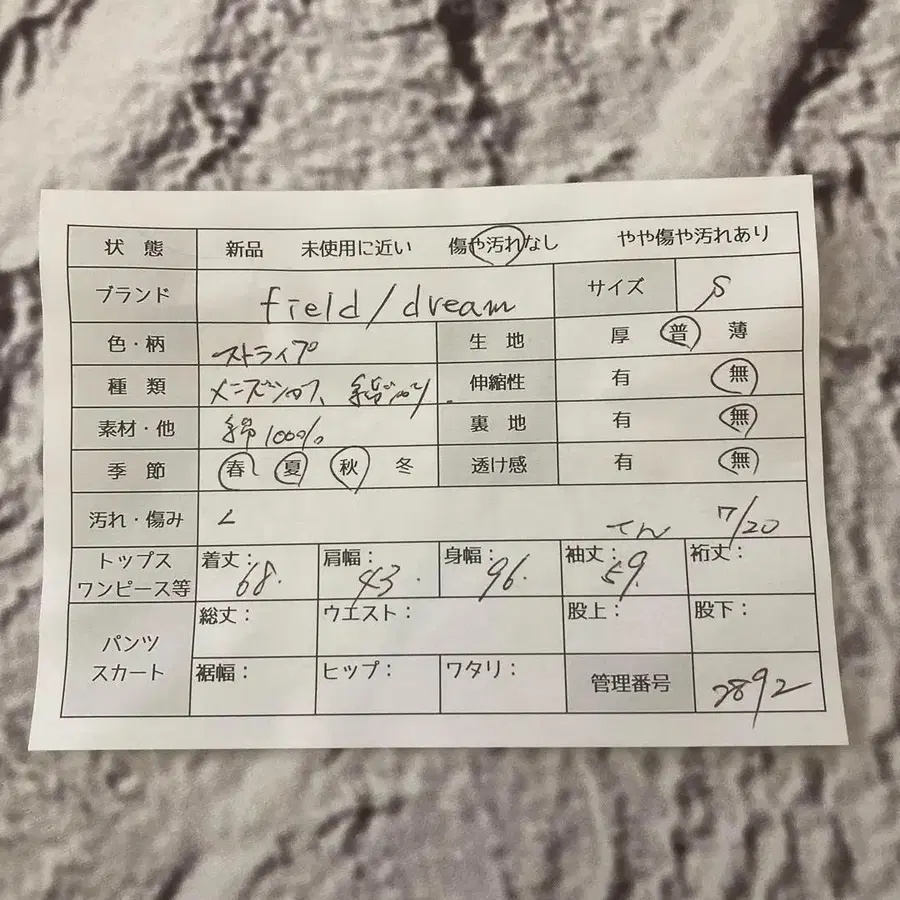 状 態 新品 未使用に近い 傷や汚れなし やや傷や汚れあり
ブランド field/dream サイズ S
色・柄 ストライプ 生 地 厚 普 薄
種 類 伸縮性 有 無
素材・他 綿100% 裏 地 有 無
季 節 春 夏 秋 冬 透け感 有 無
汚れ・傷み てん 7/20
トップス ワンピース等 着丈: 68. 肩幅: 43. 身幅: 96. 袖丈: 59. 裄丈:
パンツ スカート 総丈: ウエスト: 股上: 股下:
裾幅: ヒップ: ワタリ: 管理番号 2892